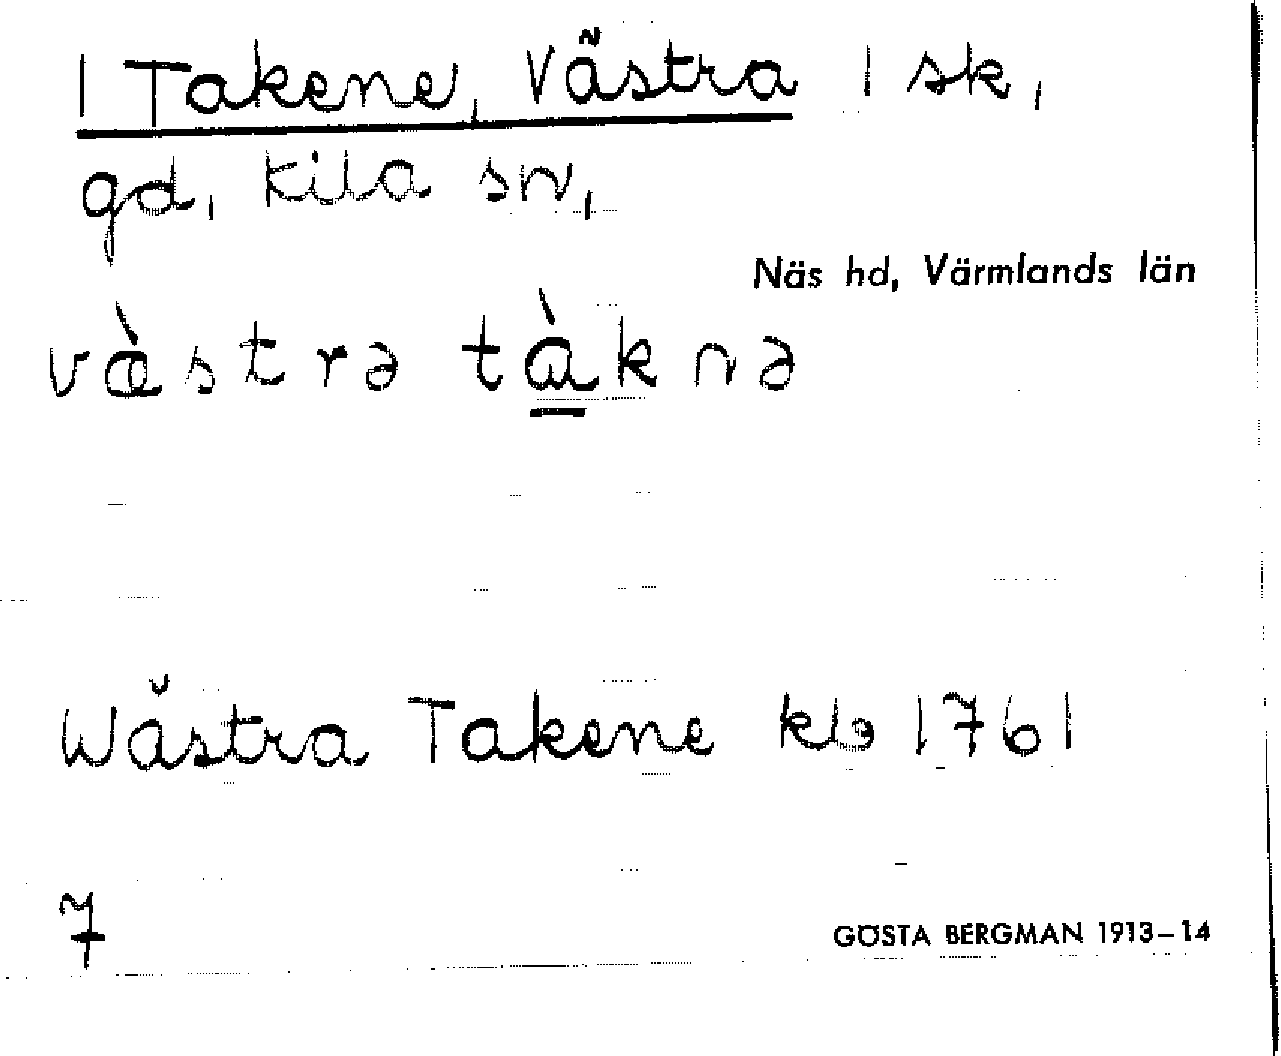 1 Takene, Västra 1 sk,
gd, Kila sn,
Näs hd, Värmlands län
væ̀strə tàknə
Wästra Takene kb 1761
7
GÖSTA BERGMAN 1913–14